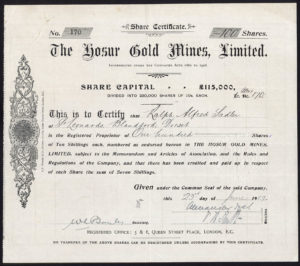 Share Certificate.
No. 170 100 Shares.
The Hosur Gold Mines, Limited.
Incorporated under the Companies Acts 1862 to 1908
SHARE CAPITAL £115,000,
DIVIDED INTO 230,000 SHARES OF 10s. EACH.
This is to Certify that Ralph Alfred
St Leonards Blandford Dorset
is the Registered Proprietor of One hundred Shares
of Ten Shillings each, numbered as endorsed hereon in THE HOSUR GOLD MINES,
LIMITED, subject to the Memorandum and Articles of Association, and the Rules and
Regulations of the Company, and that there has been credited and paid up in respect
of each Share the sum of Seven Shillings.
Given under the Common Seal of the said Company,
this 25 day of June
Secretary.
REGISTERED OFFICE: 5 & 6, QUEEN STREET PLACE, LONDON, E.C.
NO TRANSFER OF THE ABOVE SHARES CAN BE REGISTERED UNLESS ACCOMPANIED BY THIS CERTIFICATE.